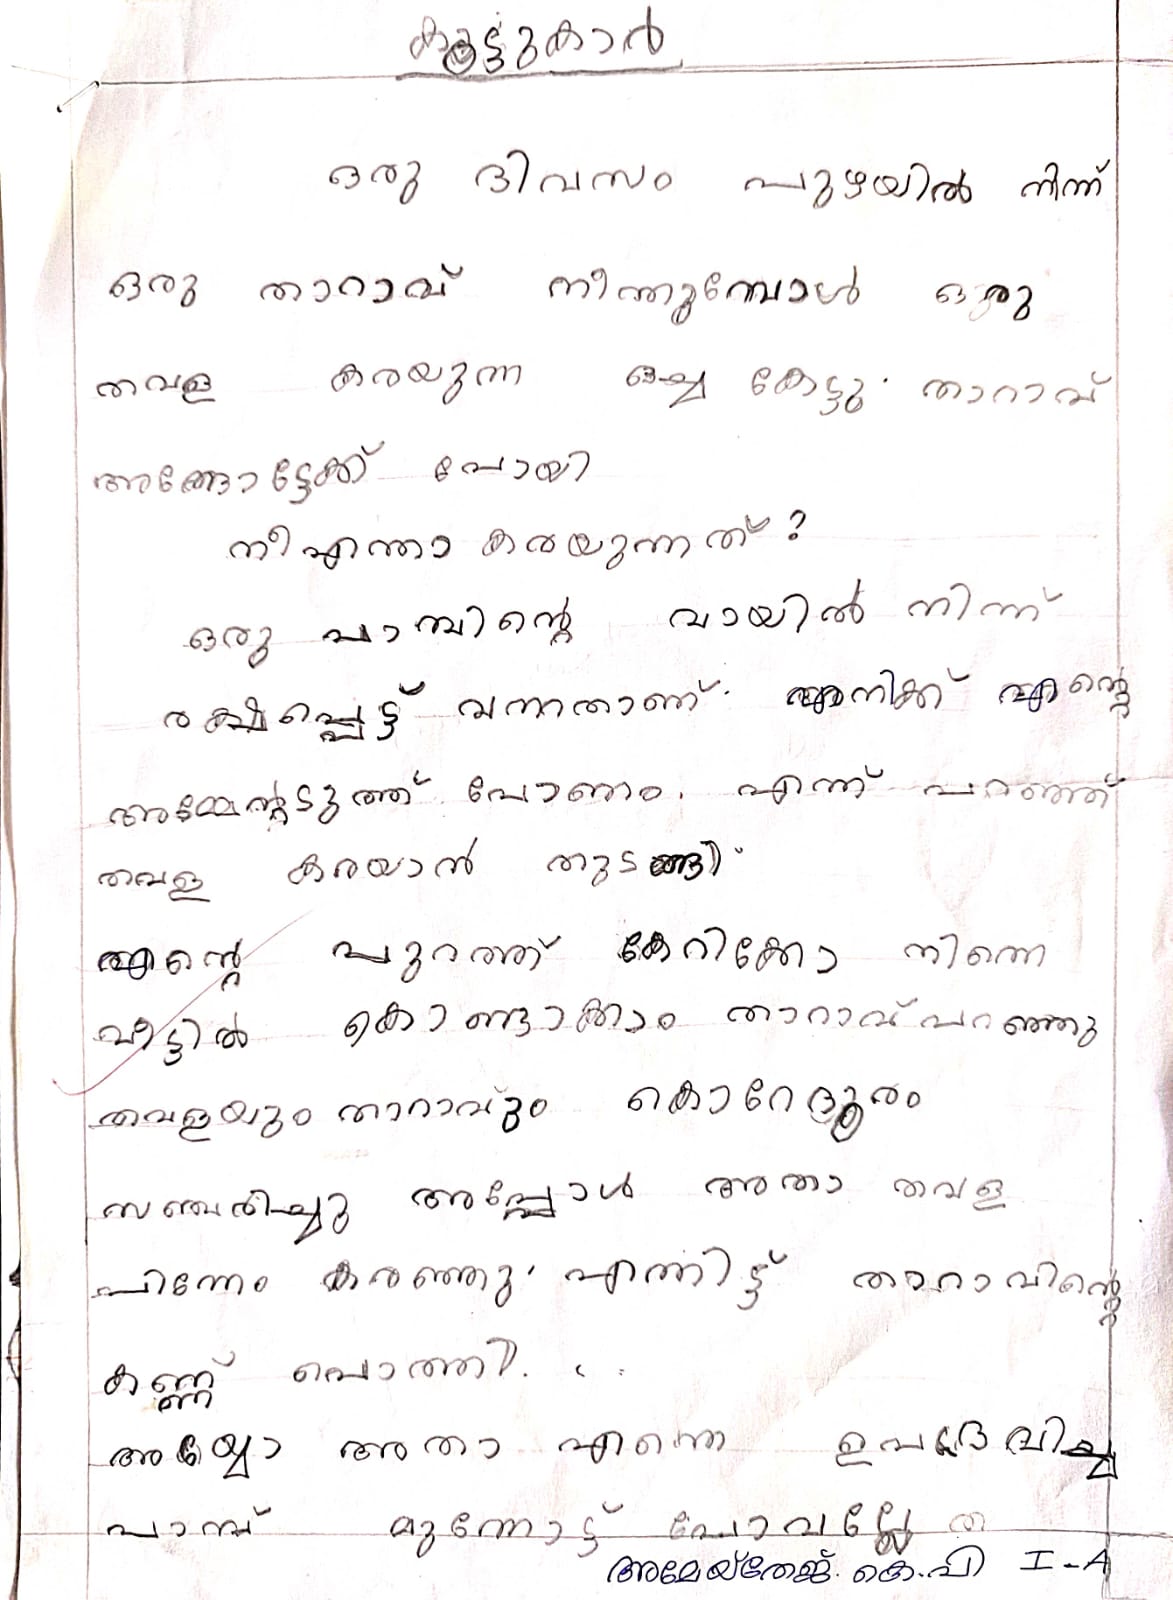 കൂട്ടുകാൻ
ഒരു ദിവസം പുഴയിൽ നിന്ന്
ഒരു താറാവ് നീന്തുമ്പോൾ ഒരു
തവള കരയുന്ന ഒച്ച കേട്ടു. താറാവ്
അങ്ങോട്ടേക്ക് പോയി
നീ എന്താ കരയുന്നത്?
ഒരു പാമ്പിന്റെ വായിൽ നിന്ന്
രക്ഷപ്പെട്ട് വന്നതാണ്. എനിക്ക് എന്റെ
അമ്മേന്റടുത്ത് പോണം. എന്ന് പറഞ്ഞ്
തവള കരയാൻ തുടങ്ങി.
എന്റെ പുറത്ത് കേറിക്കോ നിന്നെ
വീട്ടിൽ കൊണ്ടാക്കാം താറാവ് പറഞ്ഞു
തവളയും താറാവും കൊറേദൂരം
സഞ്ചരിച്ചു അപ്പോൾ അതാ തവള
പിന്നേം കരഞ്ഞു. എന്നിട്ട് താറാവിന്റെ
കണ്ണ് പൊത്തി. . .
അയ്യോ അതാ എന്നെ ഉപദ്രവിച്ച
പാമ്പ് മുന്നോട്ട് പോവല്ലേ
അമേയ്തേജ്. കെ.പി I-A